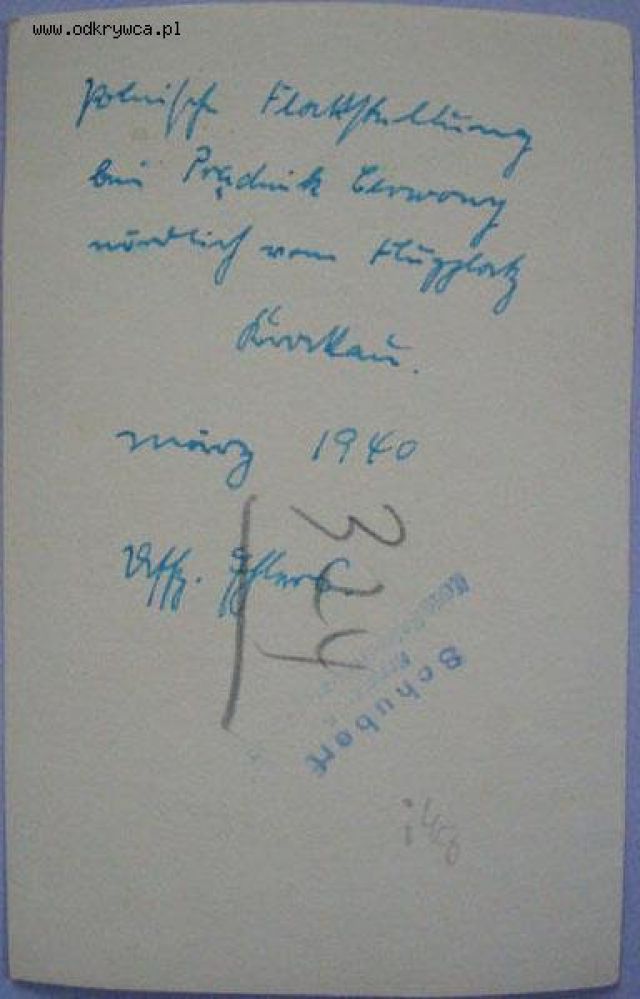 www.odkrywca.pl
Polnische Flakstellung
bei Prądnik Cerwony
nördlich vom Flugplatz
Krakau.
März 1940
Uffz.
324
Schubert